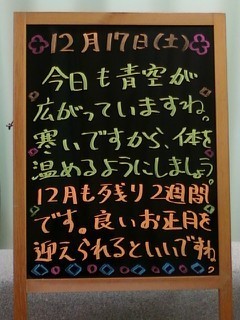 12月17日(土)
今日も青空が
広がっていますね。
寒いですから、体を
温めるようにしましょう。
12月も残り2週間
です。良いお正月を
迎えられるといいですね。